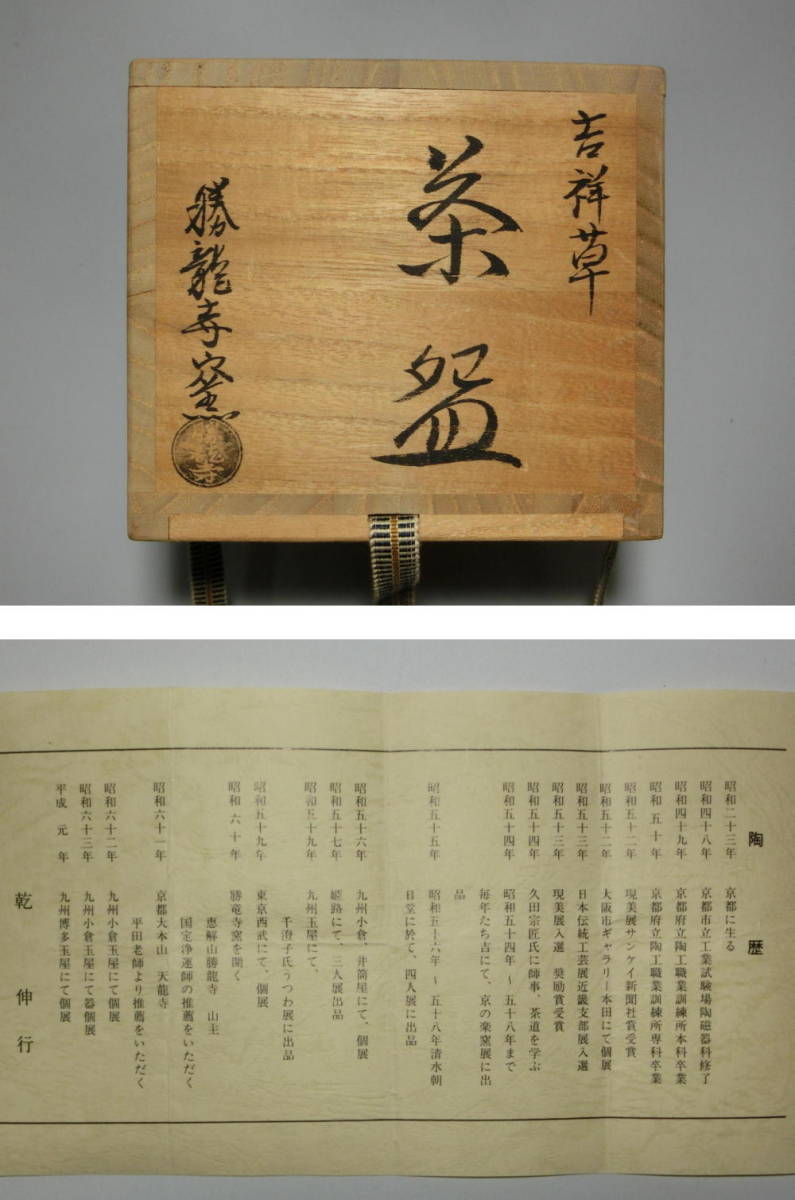 吉祥草
茶盌
勝龍寺窯
陶歴
昭和二十三年 京都に生る
昭和四十八年 京都市立工業試験場陶磁器科修了
昭和四十九年 京都府立陶工職業訓練所本科卒業
昭和五十年 京都府立陶工職業訓練所専科卒業
昭和五十二年 現美展サンケイ新聞社賞受賞
昭和五十二年 大阪市ギャラリー本田にて個展
昭和五十三年 日本伝統工芸展近畿支部展入選
昭和五十三年 現美展入選 奨励賞受賞
昭和五十四年 久田宗匠氏に師事、茶道を学ぶ
昭和五十四年 昭和五十四年 〜 五十八年まで
毎年たち吉にて、京の楽窯展に出
品
昭和五十五年 昭和五十六年 〜 五十八年清水朝
日堂に於て、四人展に出品
昭和五十六年 九州小倉、井筒屋にて、個展
昭和五十七年 姫路にて、三人展出品
昭和五十九年 九州玉屋にて、
千澄子氏うつわ展に出品
昭和五十九年 東京西武にて、個展
昭和六十年 勝竜寺窯を開く
恵解山勝龍寺 山主
国定浄運師の推薦をいただく
昭和六十一年 京都大本山 天龍寺
平田老師より推薦をいただく
昭和六十二年 九州小倉玉屋にて個展
昭和六十三年 九州小倉玉屋にて器個展
平成元年 九州博多玉屋にて個展
乾伸行